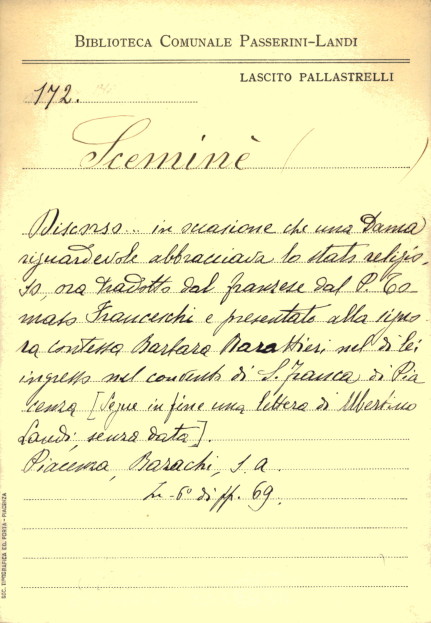 BIBLIOTECA COMUNALE PASSERINI-LANDI
LASCITO PALLASTRELLI
172.
Sceminè ( )
Discorso... in occasione che una Dama
riguardevole abbracciava lo stato religio,
so, ora tradotto dal franzese dal P. To-
maso Franceschi e presentato alla signo-
ra contessa Barbara Barattieri nel di lei
ingresso nel convento di S. Franca di Pia
cenza [Segue in fine una lettera di Ubertino
Landi, senza data].
Piacenza, Barachi, s. a.
In-6° di pp. 69.
SOC. TIPOGRAFICA DEL PORTA - PIACENZA